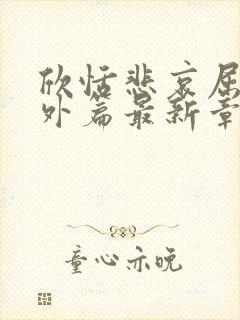 欣恬悲哀屈
外篇最新章
童心亦晚